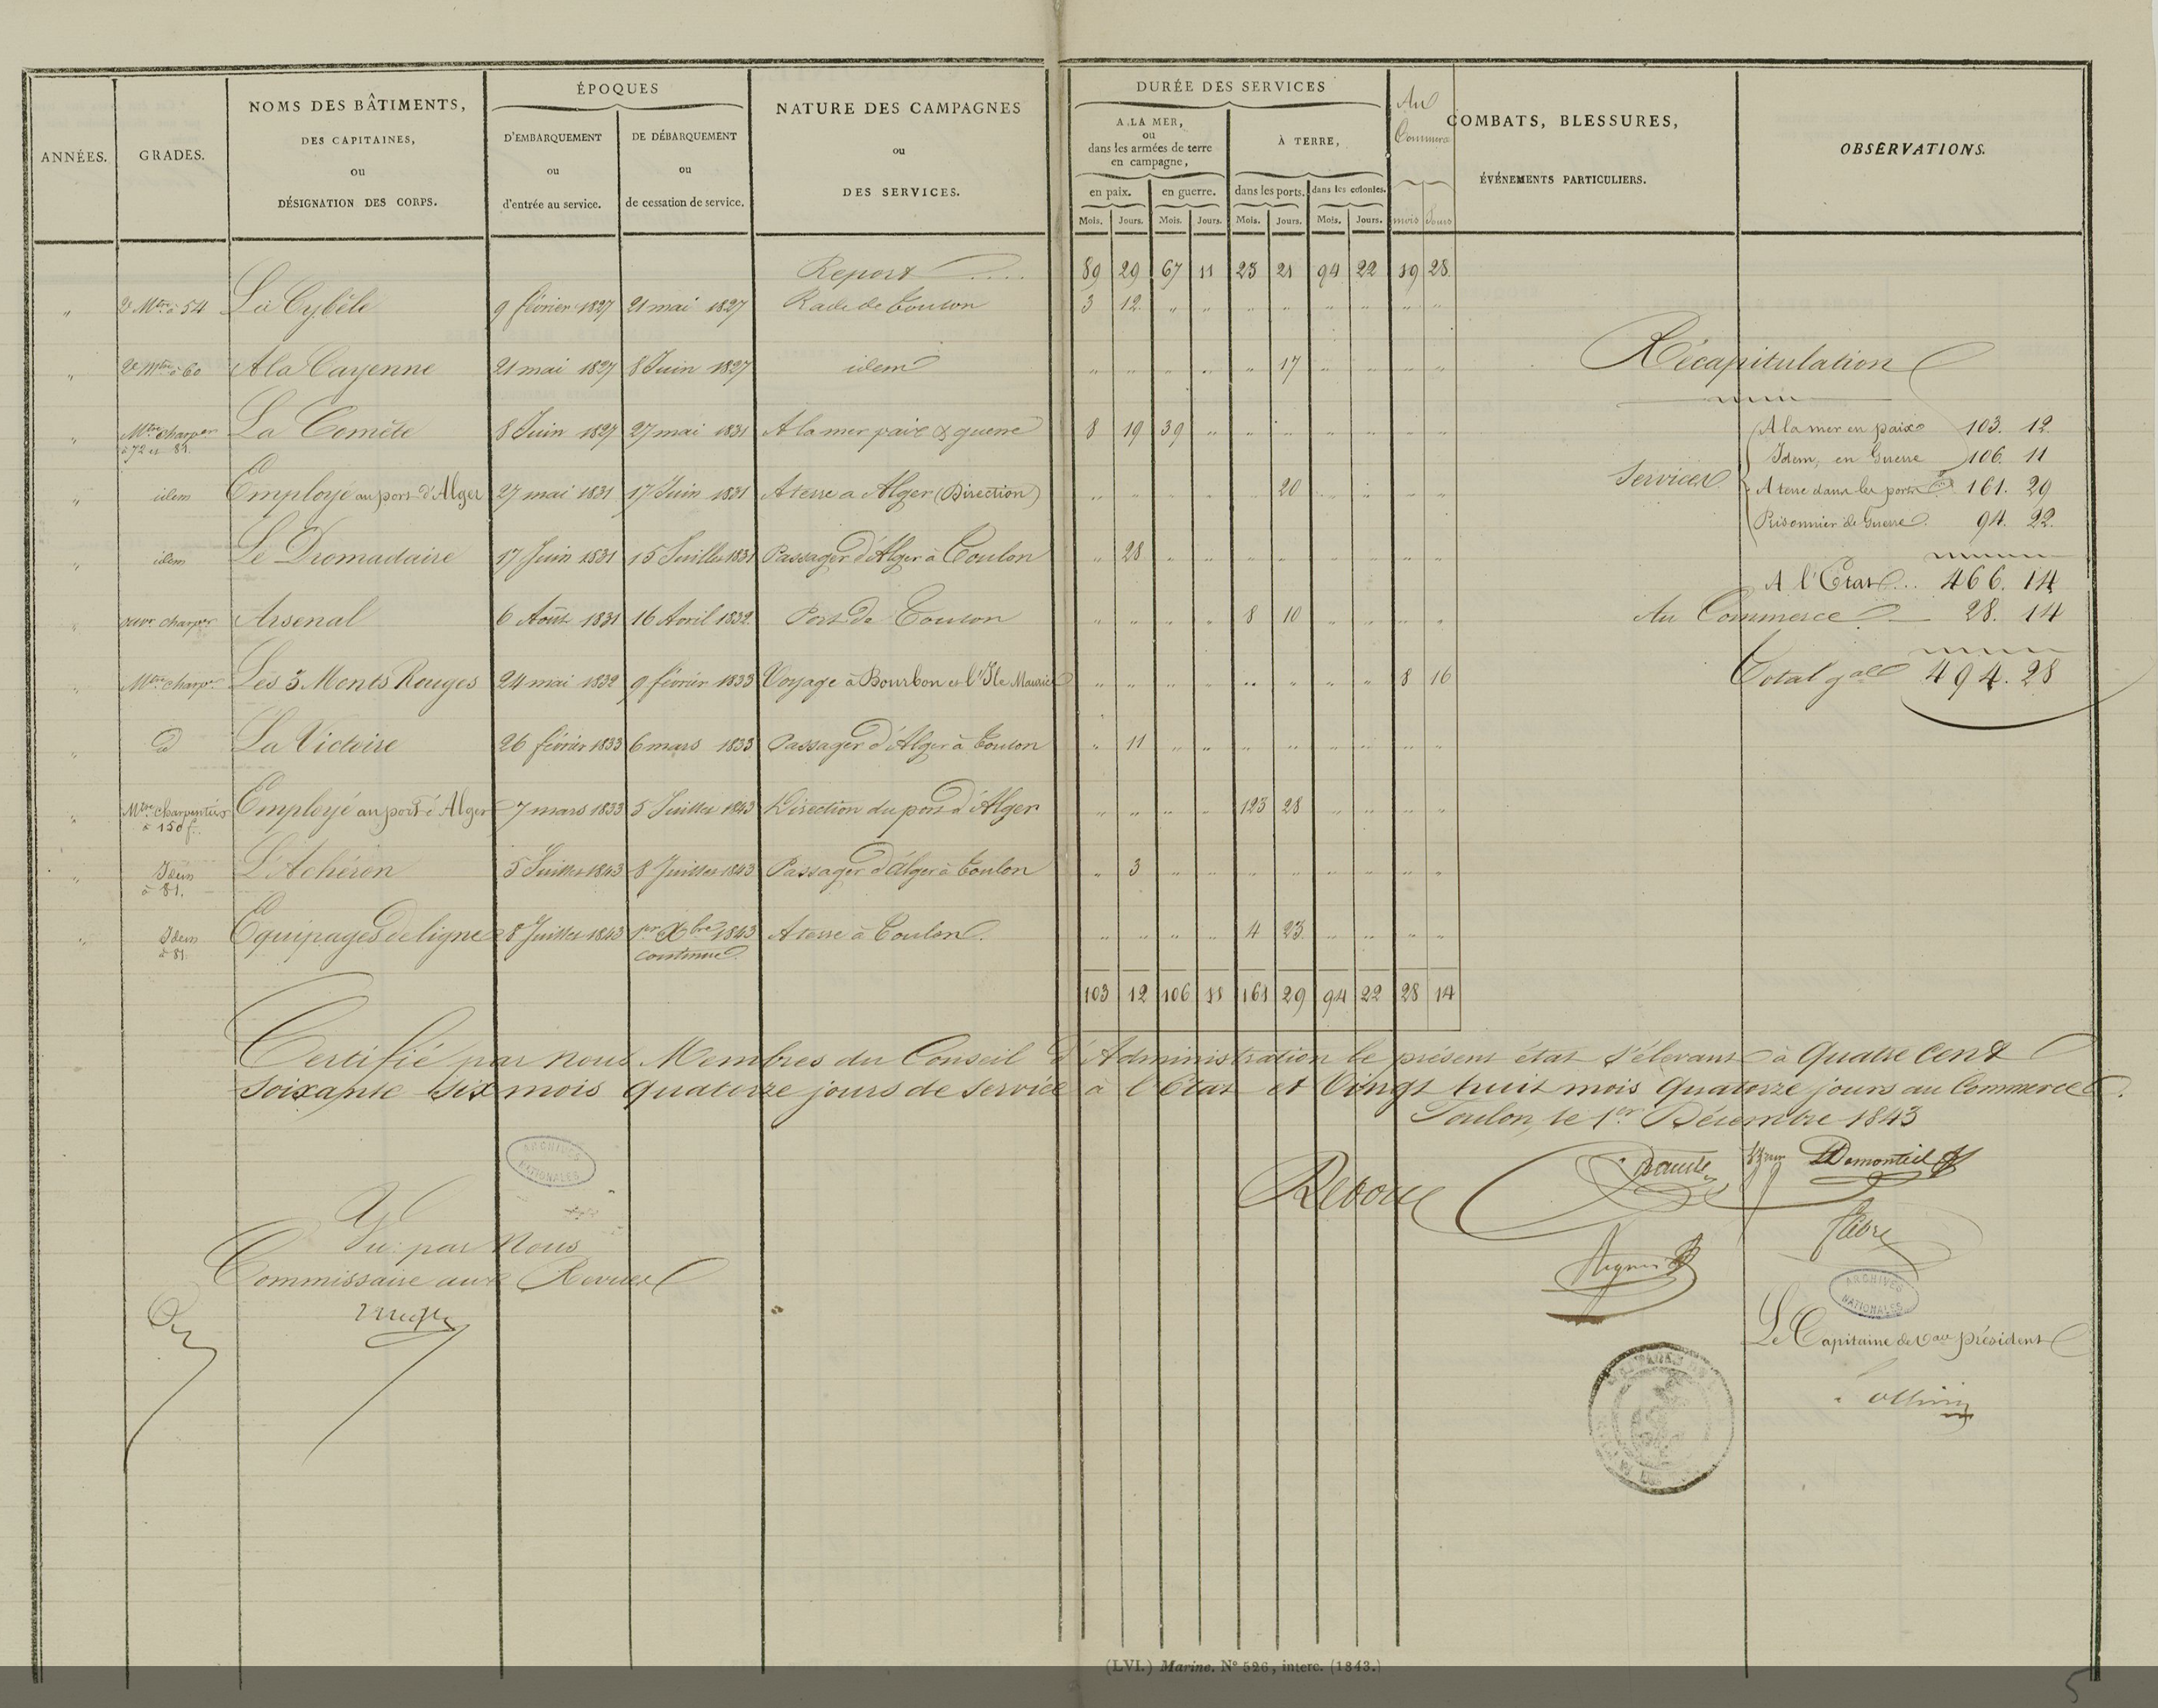 ANNÉES.
GRADES.
NOMS DES BÂTIMENTS,
DES CAPITAINES,
ou
DÉSIGNATION DES CORPS.
ÉPOQUES
D'EMBARQUEMENT
ou
d'entrée au service.
DE DÉBARQUEMENT
ou
de cessation de service.
NATURE DES CAMPAGNES
ou
DES SERVICES.
DURÉE DES SERVICES
A LA MER,
ou
dans les armées de terre
en campagne,
À TERRE,
en paix. en guerre. dans les ports. dans les colonies.
Mois. Jours. Mois. Jours. Mois. Jours. Mois. Jours.
Au
Commerce
mois Jours
COMBATS, BLESSURES,
ÉVÉNEMENTS PARTICULIERS.
OBSERVATIONS.
Report .... 89 29 67 11 23 21 94 22 19 28
" 2e Mtre à 54 La Cybèle 9 février 1827 21 mai 1827 Rade de Toulon 3 12 " " " " " " " "
" 2e Mtre à 60 A la Cayenne 21 mai 1827 8 Juin 1827 idem " " " " " 17 " " " "
" Mtre charper La Comète 8 Juin 1827 27 mai 1831 A la mer paix & guerre 8 19 39 " " " " " " "
à 72 et 81.
" idem Employé au port d'Alger 27 mai 1831 17 Juin 1831 A terre a Alger (Direction) " " " " " 20 " " " "
" idem Le Dromadaire 17 Juin 1831 15 Juillet 1831 Passager d'Alger à Toulon " 28 " " " " " " " "
" ouvr charper Arsenal 6 Août 1831 16 Avril 1832 Port de Toulon " " " " 8 10 " " " "
" Mtre charpr Les 3 Monts Rouges 24 mai 1832 9 février 1833 Voyage à Bourbon et l'Ile Maurice " " " " " " " " 8 16
" d La Victoire 26 février 1833 6 mars 1833 Passager d'Alger à Toulon " 11 " " " " " " " "
" Mtre charpentier Employé au port d'Alger 7 mars 1833 5 Juillet 1843 Direction du port d'Alger " " " " 123 28 " " " "
à 150 f.
" Idem L'Achéron 5 Juillet 1843 8 Juillet 1843 Passager d'Alger à Toulon " 3 " " " " " " " "
à 81.
" Idem Equipages de ligne 8 Juillet 1843 1er Xbre 1843 A terre à Toulon. " " " " 4 23 " " " "
à 81.
continue
103 12 106 11 161 29 94 22 28 14
Récapitulation
Services
A la mer en paix 103. 12.
Idem, en Guerre 106. 11
A terre dans les ports 161. 29
Prisonnier de Guerre 94. 22.
A l'Etat... 466. 14
Au Commerce 28. 14
Total gal 494. 28
Certifié par nous Membres du Conseil d'Administration le présent état s'élevant à Quatre cent
soixante six mois quatorze jours de service à l'Etat et Vingt huit mois Quatorze jours au Commerce.
Toulon, le 1er Décembre 1843
Demonteil
ARCHIVES
NATIONALES
Vu par Nous
Commissaire aux Revues
ARCHIVES
NATIONALES
Le Capitaine de Vau président
(LVI.) Marine. N° 526, interc. (1843.)
5